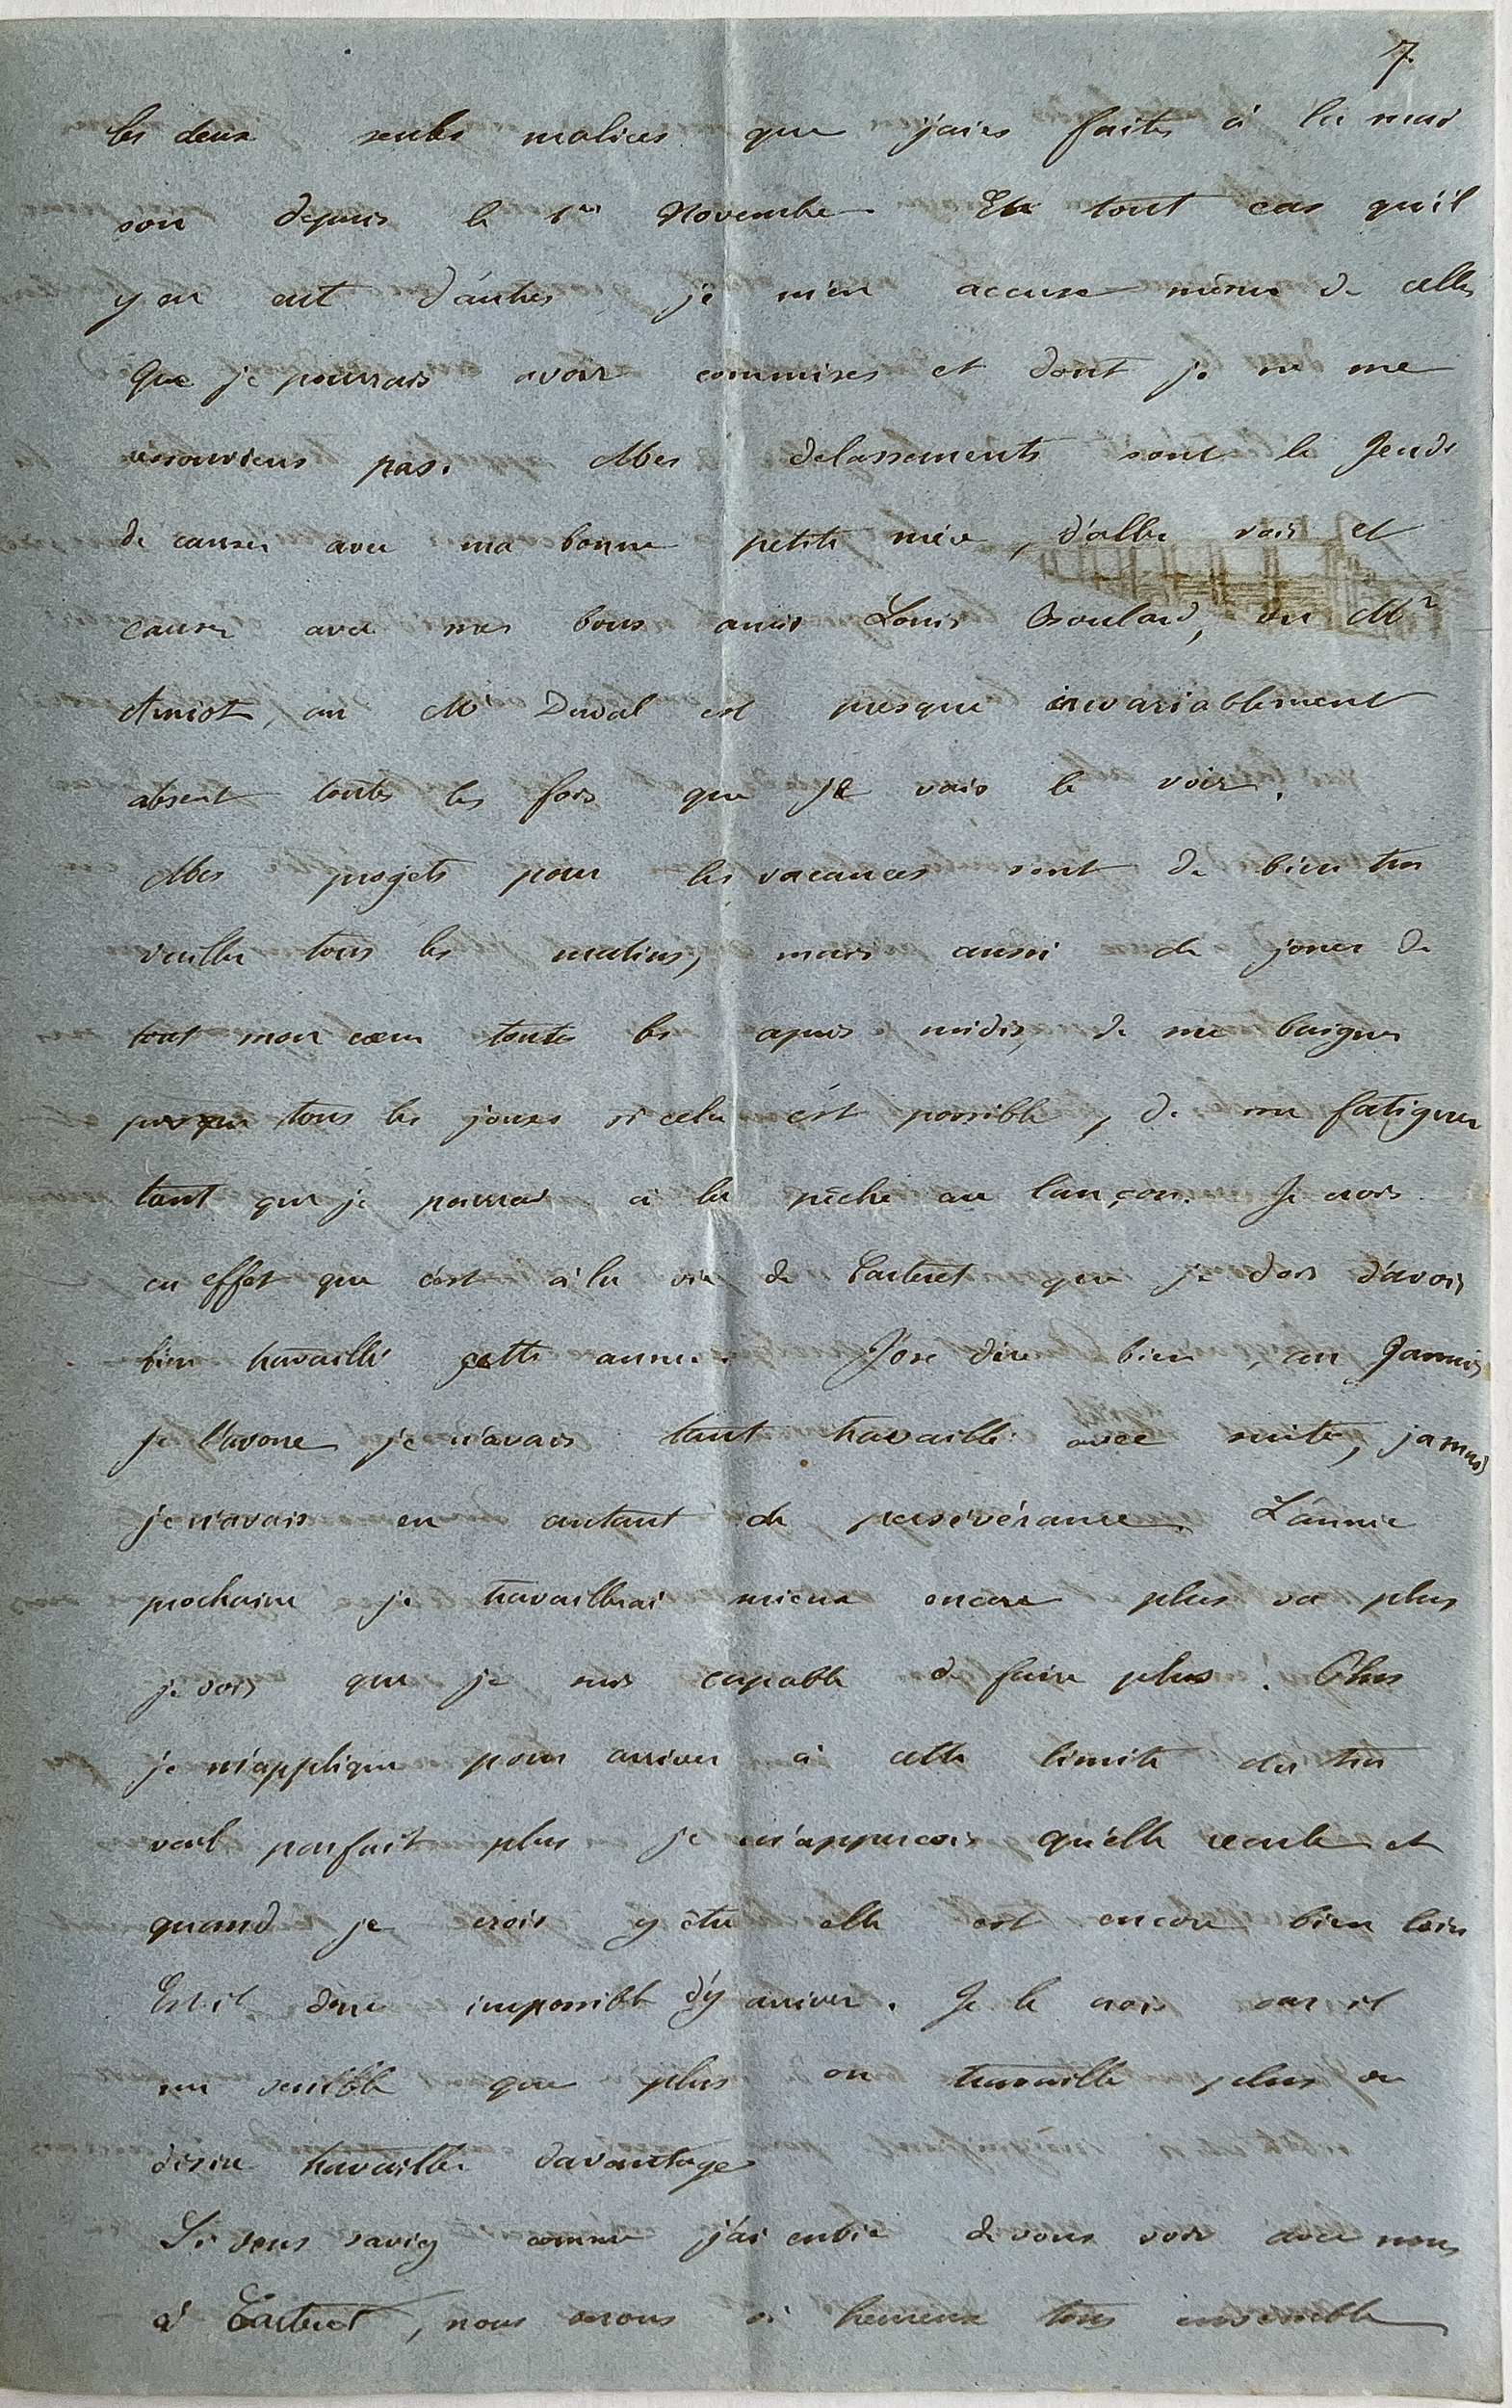 7.
les deux seules malices que j'aies faites à la mai
son depuis le 1er Novembre. En tout cas qu'il
y en eut d'autres, je m'en accuse même de celles
que je pourrais avoir commises et dont je ne me
ressouviens pas. Mes delassements sont le Jeudi
de causer avec ma bonne petite mère, d'aller voir et
causer avec mes bons amis Louis Boulard, ou Mr
Amiot, car Mr Duval est presque invariablement
absent toutes les fois que je vais le voir.
Mes projets pour les vacances sont de bien tra
vailler tous les matins, mais aussi de jouer de
tout mon cœur toutes les apres midis, de me baigner
presque tous les jours si cela est possible, de me fatiguer
tant que je pourrai à la pêche au lançon. Je crois
en effet que c'est à la vie de Carteret que je dois d'avoir
bien travaillé cette année. J'ose dire bien, car Jamais
je l'avoue je n'avais tant travaillé avec suite, jamais
je n'avais eu autant de persévérance. L'année
prochaine je travaillerai mieux encore plus va plus
je vois que je suis capable de faire plus. Plus
je m'applique pour arriver à cette limite du tra
vail parfait plus je m'apperçois qu'elle recule et
quand je crois y être elle est encore bien loin
Est il donc impossible d'y arriver. Je le crois car il
me semble que plus on travaille plus on
désire travailler davantage
Si vous saviez comme j'ai envie de vous voir avec nous
à Carteret, nous serons si heureux tous ensemble